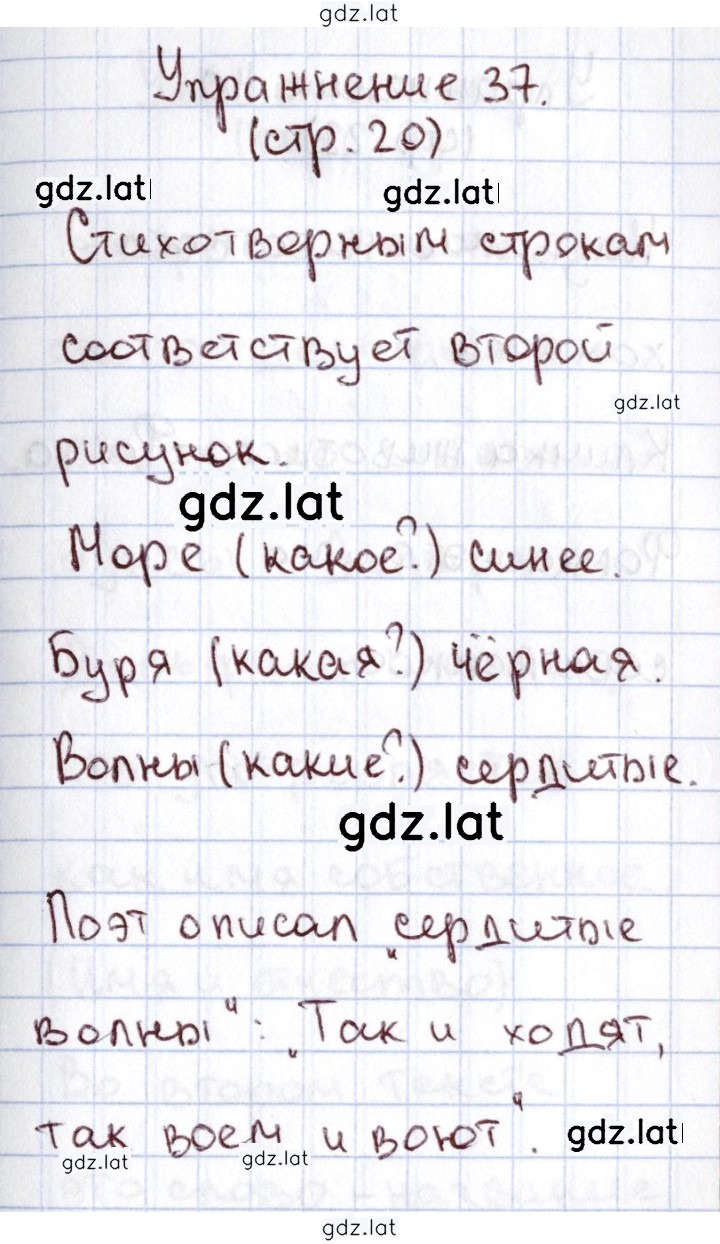 gdz.lat
Упражнение 37.
(стр. 20)
gdz.lat gdz.lat
Стихотворным строкам
соответствует второй
gdz.lat
рисунок.
gdz.lat
Море (какое?) синее.
Буря (какая?) чёрная.
Волны (какие?) сердитые.
gdz.lat
Поэт описал „сердитые
волны“: „Так и ходят,
так воем и воют“.
gdz.lat
gdz.lat gdz.lat
gdz.lat